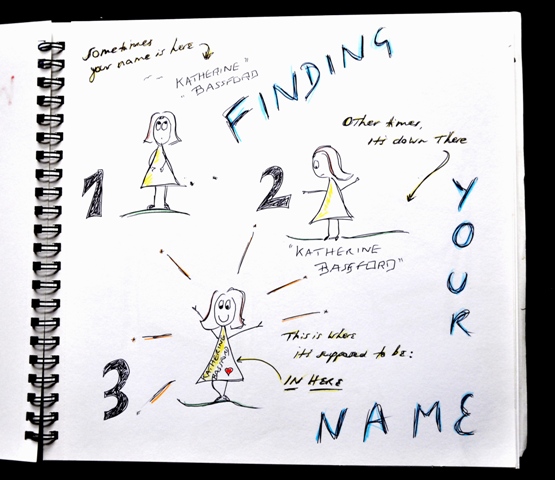 Sometimes
your name is here
"KATHERINE
BASSFORD"
FINDING
Other times,
it's down there
1
2
YOUR
"KATHERINE
BASSFORD"
KATHERINE
BASSFORD
This is where
it's supposed to be:
IN HERE
3
NAME